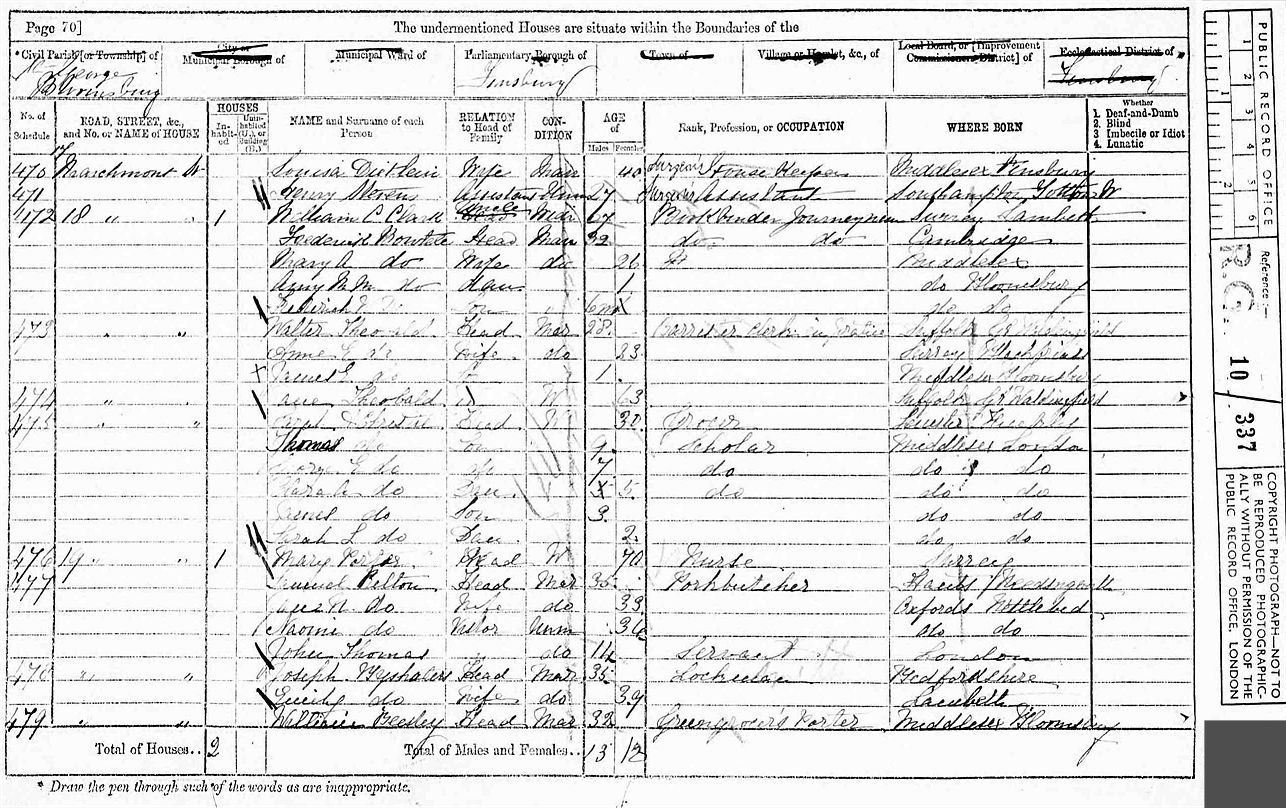 Page 70]
The undermentioned Houses are situate within the Boundaries of the
*Civil Parish [or Township] of
City or Municipal Borough of
Municipal Ward of
Parliamentary Borough of
Town of
Village or Hamlet, &c., of
Local Board, or [Improvement Commissioners District] of
Ecclesiastical District of
George Bloomsbury
Finsbury
Finsbury
No. of Schedule
ROAD, STREET, &c., and No. or NAME of HOUSE
HOUSES
In-habit-ed
Unin-habited (U.), or Building (B.)
NAME and Surname of each Person
RELATION to Head of Family
CON-DITION
AGE of
Males
Females
Rank, Profession, or OCCUPATION
WHERE BORN
Whether
1. Deaf-and-Dumb
2. Blind
3. Imbecile or Idiot
4. Lunatic
17
470 Marchmont St Louisa Wife Marr 40 Surgeon's House Keeper Middlesex Finsbury
471 Henry Stevens Assistant Unm 27 Surgeons Assistant Southampton
472 18 " " 1 William C Clark Mar 67 Bookbinder Journeyman Surrey Lambeth
Frederick Head Mar 32 do do Cambridge
Mary A do Wife do 26 Middlesex
Amy M M do Daur 1 do Bloomsbury
Frederick Son 6 mo do do
473 " " Walter Theobald Head Mar 28 Barrister Clerk Suffolk Gt Waldingfield
Anne E do Wife do 23 Surrey
James E do 1 Middlesex Bloomsbury
474 " " Jane Theobald W 63 Suffolk Gt Waldingfield
475 " " Head W 30 Grocer
Thomas do Son 9 Scholar Middlesex London
George E do do 7 do do do
Sarah do Dau 5 do do do
James do Son 3 do do
Sarah L do Dau 2 do do
476 19 " " 1 Mary Porter Head W 70 Nurse Surrey
477 Samuel Pelton Head Mar 35 Porkbutcher Hants
do Wife do 33 Oxfords Nettlebed
Naomi do Visitor Unm 34 do do
John Thomas " do 14 Servant London
478 " " Joseph Head Mar 35 Bedfordshire
Emily do Wife do 39 Lambeth
479 " " William Beesley Head Mar 32 Greengrocer's Porter Middlesex Bloomsbury
Total of Houses.. 2 Total of Males and Females.. 13 12
* Draw the pen through such of the words as are inappropriate.
PUBLIC RECORD OFFICE
1 2 3 4 5 6
1 2
Reference:-
R.G. 10/337
COPYRIGHT PHOTOGRAPH—NOT TO BE REPRODUCED PHOTOGRAPHIC-ALLY WITHOUT PERMISSION OF THE PUBLIC RECORD OFFICE, LONDON